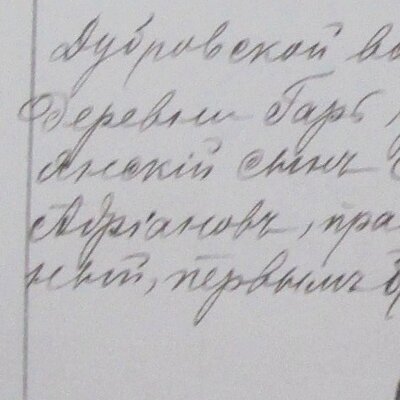 Дубровской во
деревни Гарь,
янскій сынъ
Адріановъ, пра
ный, первымъ б